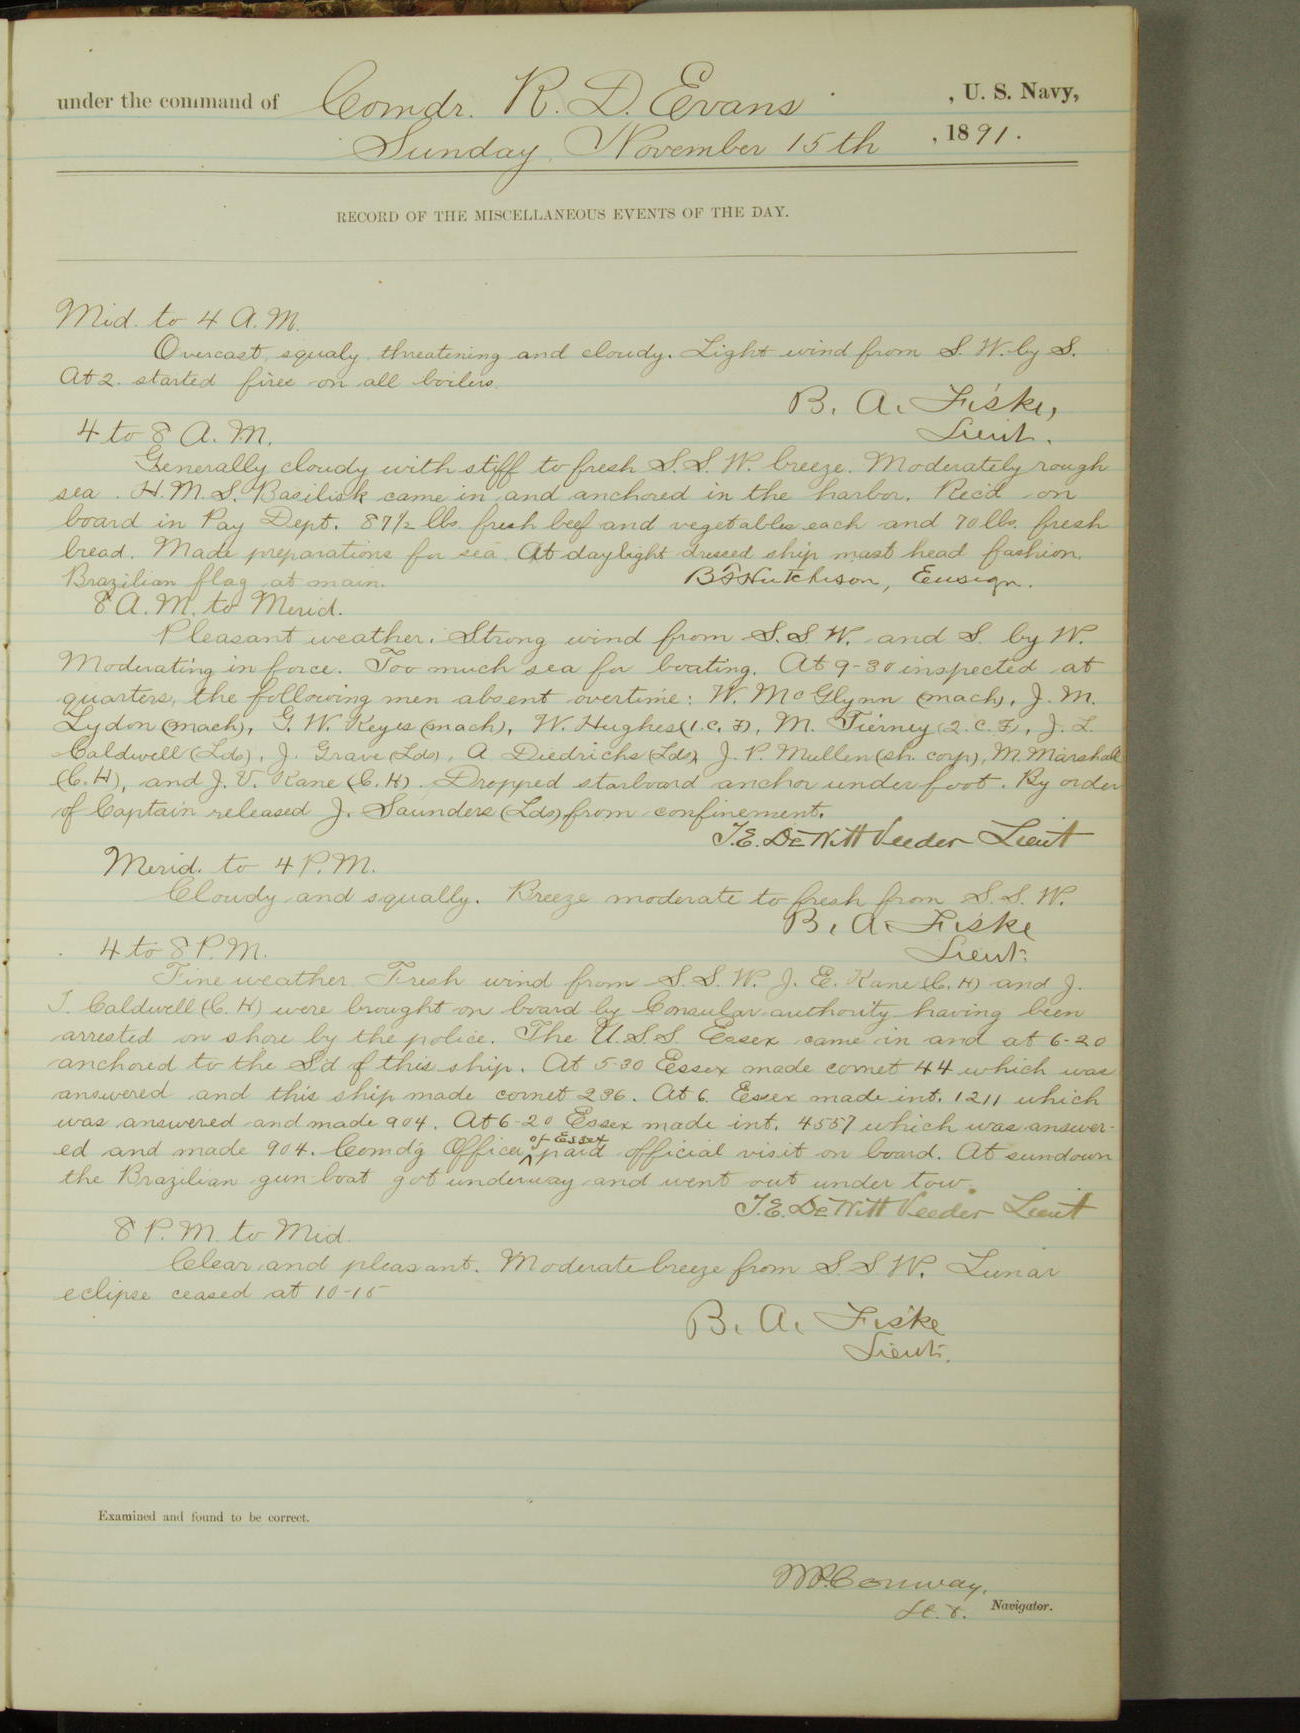 under the command of Comdr. R. D. Evans , U. S. Navy,
Sunday, November 15th , 1891.
RECORD OF THE MISCELLANEOUS EVENTS OF THE DAY.
Mid. to 4 A.M.
Overcast, squaly, threatening and cloudy. Light wind from S. W. by S.
At 2. started fires on all boilers.
B. A. Fiske,
Lieut.
4 to 8 A.M.
Generally cloudy with stiff to fresh S. S. W. breeze. Moderately rough
sea. H. M. S. Basilisk came in and anchored in the harbor. Rec'd on
board in Pay Dept. 87 1/2 lbs. fresh beef and vegetables each and 70 lbs. fresh
bread. Made preparations for sea. At daylight dressed ship mast head fashion.
Brazilian flag at main. B F Hutchison, Ensign.
8 A.M. to Merid.
Pleasant weather. Strong wind from S. S W. and S. by W.
Moderating in force. Too much sea for boating. At 9-30 inspected at
quarters, the following men absent overtime: W. McGlynn (mach), J. M.
Lydon (mach), G. W. Keyes (mach), W. Hughes (1. C. F), M. Tierney (2. C. F), J. L.
Caldwell (Lds), J. Grave (Lds), A Diedrichs (Lds), J. P. Mullen (sh. corp), M. Marshall
(C. H), and J. V. Kane (C. H). Dropped starboard anchor under foot. By order
of Captain released J. Saunders (Lds) from confinement.
T. E. DeWitt Veeder Lieut
Merid. to 4 P.M.
Cloudy and squally. Breeze moderate to fresh from S. S. W.
B. A. Fiske
Lieut.
4 to 8 P.M.
Fine weather. Fresh wind from S. S. W. J. E. Kane (C. H) and J.
T. Caldwell (C. H) were brought on board by Consular authority having been
arrested on shore by the police. The U. S. S. Essex came in and at 6-20
anchored to the S'd of this ship. At 5-30 Essex made cornet 44 which was
answered and this ship made cornet 236. At 6. Essex made int. 1211 which
was answered and made 904. At 6-20 Essex made int. 4557 which was answer-
ed and made 904. Comd'g Officer of Essex paid official visit on board. At sundown
the Brazilian gun boat got underway and went out under tow.
T. E. DeWitt Veeder Lieut
8 P.M. to Mid.
Clear and pleasant. Moderate breeze from S. S W. Lunar
eclipse ceased at 10-15
B. A. Fiske
Lieut.
Examined and found to be correct.
W P. Conway,
Navigator.